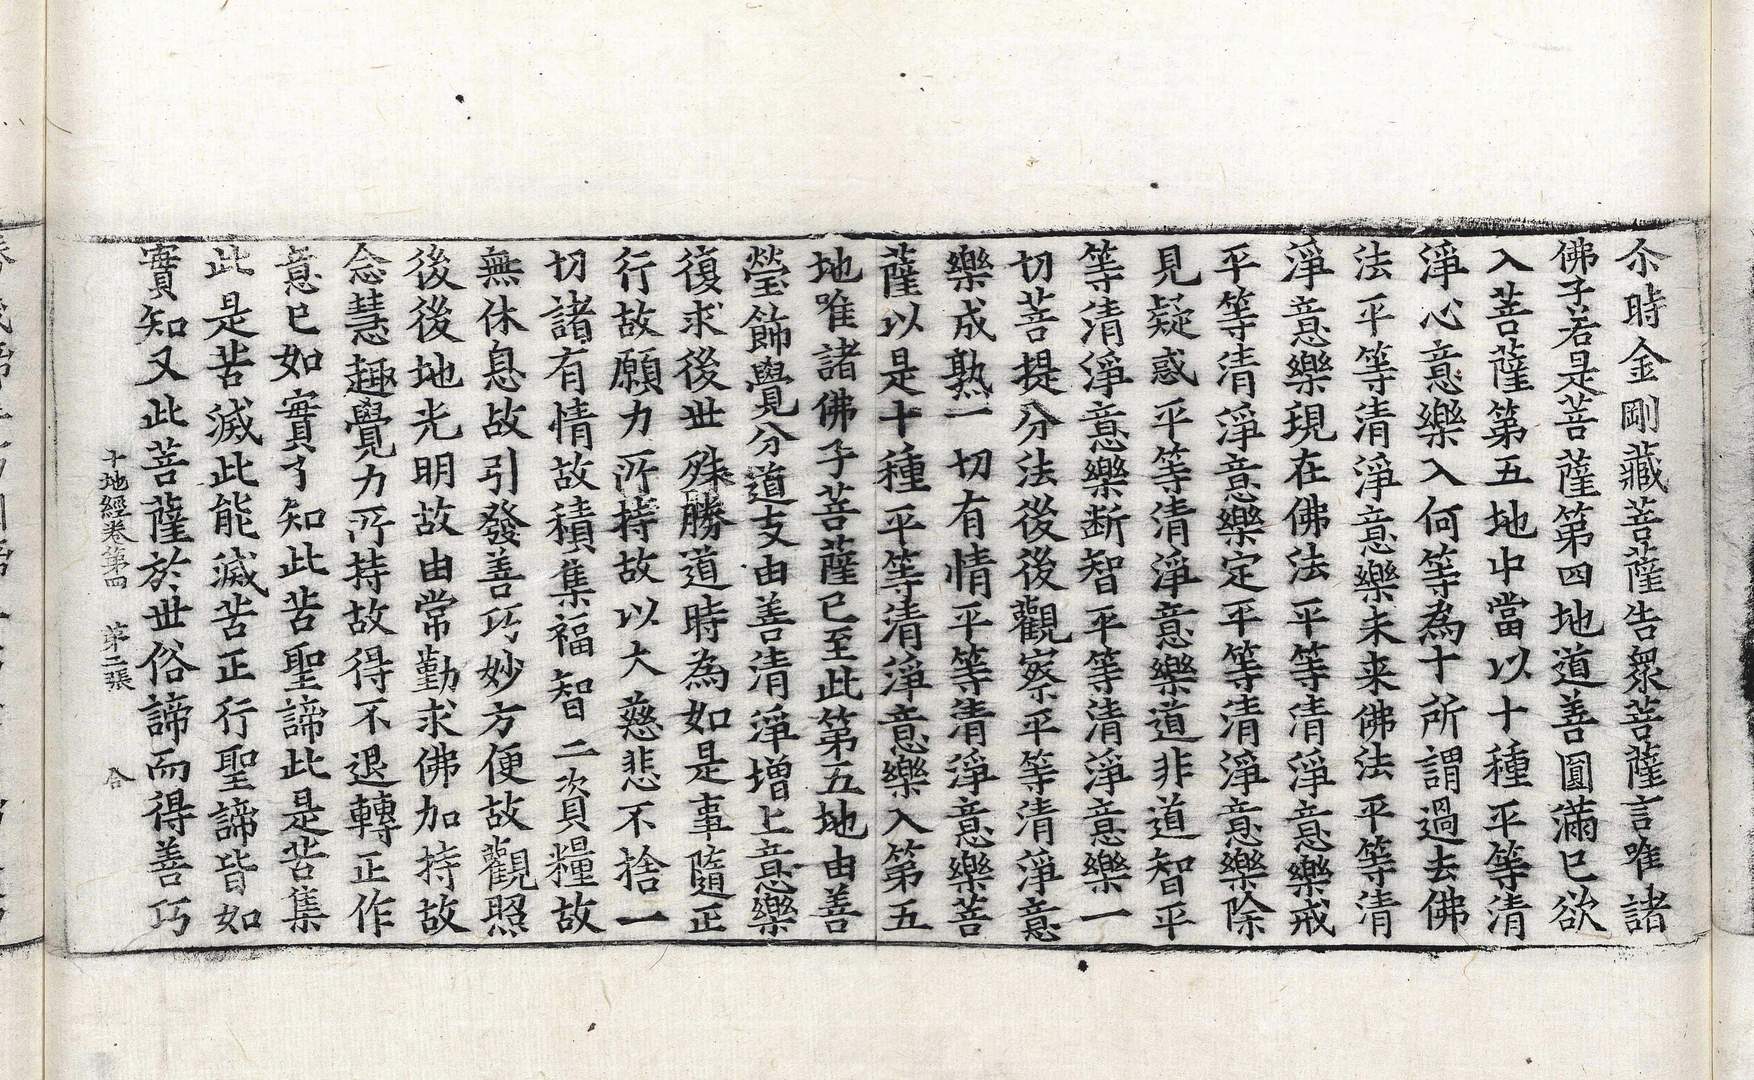 尒時金剛藏菩薩告衆菩薩言唯諸
佛子若是菩薩第四地道善圓滿已欲
入菩薩第五地中當以十種平等清
淨心意樂入何等為十所謂過去佛
法平等清淨意樂未来佛法平等清
淨意樂現在佛法平等清淨意樂戒
平等清淨意樂定平等清淨意樂除
見疑惑平等清淨意樂道非道智平
等清淨意樂断智平等清淨意樂一
切菩提分法後後觀察平等清淨意
樂成熟一切有情平等清淨意樂菩
薩以是十種平等清淨意樂入第五
地唯諸佛子菩薩已至此第五地由善
瑩飾覺分道支由善清淨增上意樂
復求後世殊勝道時為如是事隨正
行故願力所持故以大慈悲不捨一
切諸有情故積集福智二次資糧故
無休息故引發善巧妙方便故觀照
後後地光明故由常勤求佛加持故
念慧趣覺力所持故得不退轉正作
意已如實了知此苦聖諦此是苦集
此是苦滅此能滅苦正行聖諦皆如
實知又此菩薩於世俗諦而得善巧
十地經卷第四 第二張 合